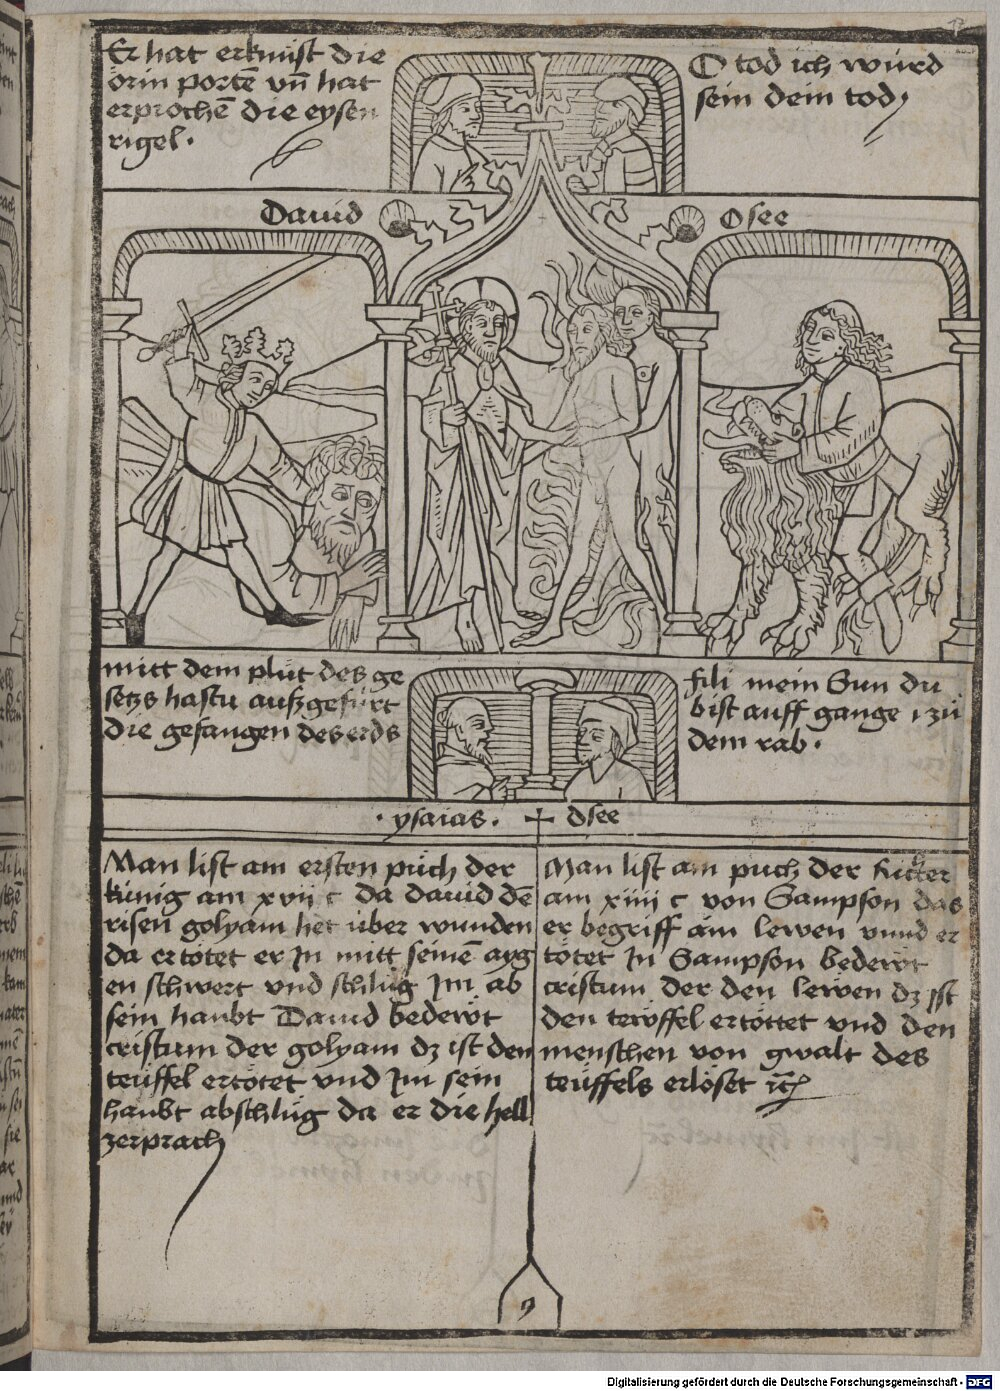 Er hat erknist die
örin portē vn̄ hat
erprochē die eysen
rigel.
O tod ich würd
sein dein tod,
Dauid
Osee
mitt dem plüt des ge
setzs hastu außgefürt
die gefangen des erds
fili mein Sun du
bist auff gange zü
dem rab.
. ysaias. osee
Man list am ersten püch der
künig am xvij c da dauid dē
risen golyam het über wunden
da ertötet er In mitt seinē ayg
en schwert vnd schlüg Im ab
sein haubt Dauid bedewt
cristum der golyam dz ist den
teüffel ertötet vnd Im sein
haubt abschlüg da er die hell
zerprach
Man list am püch der Richter
am xiiij c von Sampson das
er begriff äin lewen vnnd er
tötet In Sampson bedewt
cristum der den lewen dz ist
den tewffel ertöttet vnd den
menschen von gwalt des
teüffels erlöset
Digitalisierung gefördert durch die Deutsche Forschungsgemeinschaft - DFG